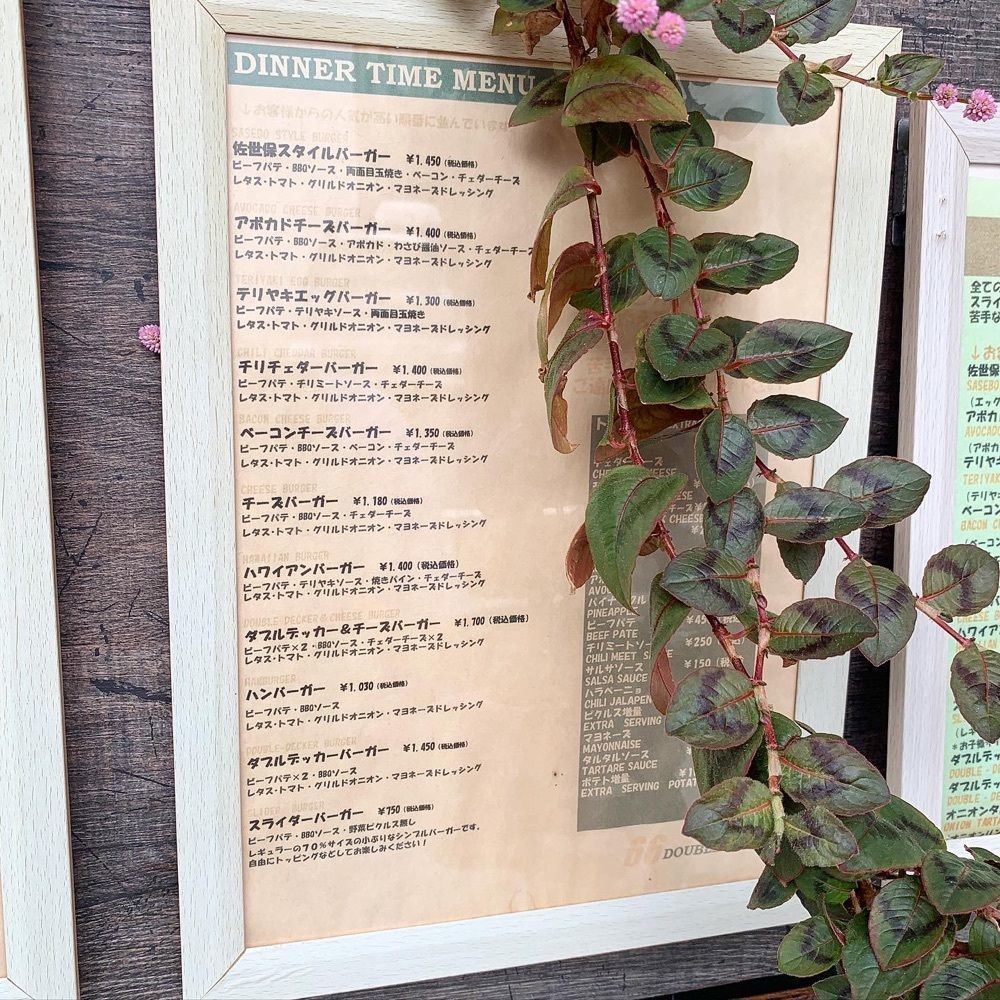 DINNER TIME MENU
↓お客様からの人気が高い順番に並んでいます
SASEBO STYLE BURGER
佐世保スタイルバーガー ￥1.450（税込価格）
ビーフパテ・BBQソース・両面目玉焼き・ベーコン・チェダーチーズ
レタス・トマト・グリルドオニオン・マヨネーズドレッシング
AVOCADO CHEESE BURGER
アボカドチーズバーガー ￥1.400（税込価格）
ビーフパテ・BBQソース・アボカド・わさび醤油ソース・チェダーチーズ
レタス・トマト・グリルドオニオン・マヨネーズドレッシング
TERIYAKI EGG BURGER
テリヤキエッグバーガー ￥1.300（税込価格）
ビーフパテ・テリヤキソース・両面目玉焼き
レタス・トマト・グリルドオニオン・マヨネーズドレッシング
CHILI CHEDDAR BURGER
チリチェダーバーガー ￥1.400（税込価格）
ビーフパテ・チリミートソース・チェダーチーズ
レタス・トマト・グリルドオニオン・マヨネーズドレッシング
BACON CHEESE BURGER
ベーコンチーズバーガー ￥1.350（税込価格）
ビーフパテ・BBQソース・ベーコン・チェダーチーズ
レタス・トマト・グリルドオニオン・マヨネーズドレッシング
CHEESE BURGER
チーズバーガー ￥1.180（税込価格）
ビーフパテ・BBQソース・チェダーチーズ
レタス・トマト・グリルドオニオン・マヨネーズドレッシング
HAWAIIAN BURGER
ハワイアンバーガー ￥1.400（税込価格）
ビーフパテ・テリヤキソース・焼きパイン・チェダーチーズ
レタス・トマト・グリルドオニオン・マヨネーズドレッシング
DOUBLE-DECKER&CHEESE BURGER
ダブルデッカー＆チーズバーガー ￥1.700（税込価格）
ビーフパテ×2・BBQソース・チェダーチーズ×2
レタス・トマト・グリルドオニオン・マヨネーズドレッシング
HAMBURGER
ハンバーガー ￥1.030（税込価格）
ビーフパテ・BBQソース
レタス・トマト・グリルドオニオン・マヨネーズドレッシング
DOUBLE-DECKER BURGER
ダブルデッカーバーガー ￥1.450（税込価格）
ビーフパテ×2・BBQソース
レタス・トマト・グリルドオニオン・マヨネーズドレッシング
SLIDER BURGER
スライダーバーガー ￥750（税込価格）
ビーフパテ・BBQソース・野菜ピクルス無し
レギュラーの70％サイズの小ぶりなシンプルバーガーです。
自由にトッピングなどしてお楽しみください！
チェダーチーズ
CHEESE
PINEAPPLE
ビーフパテ ￥45
BEEF PATE
チリミートソース ￥250
CHILI MEET
サルサソース ￥150（税
SALSA SAUCE
ハラペーニョ
CHILI JALAPEN
ピクルス増量
EXTRA SERVING
マヨネーズ
MAYONNAISE
タルタルソース
TARTARE SAUCE
ポテト増量
EXTRA SERVING POTA
66 DOUBL
全ての
スライ
苦手な
↓お客
佐世保
SASEBO
（エッグ
アボカ
AVOCAD
（アボカ
テリヤ
TERIYAK
（テリヤ
ベーコン
BACON CH
ハワイアン
（レギュ
＊お子様
ダブルデッ
DOUBLE-DE
ダブルデ
DOUBLE-DE
オニオンタ
ONION TART